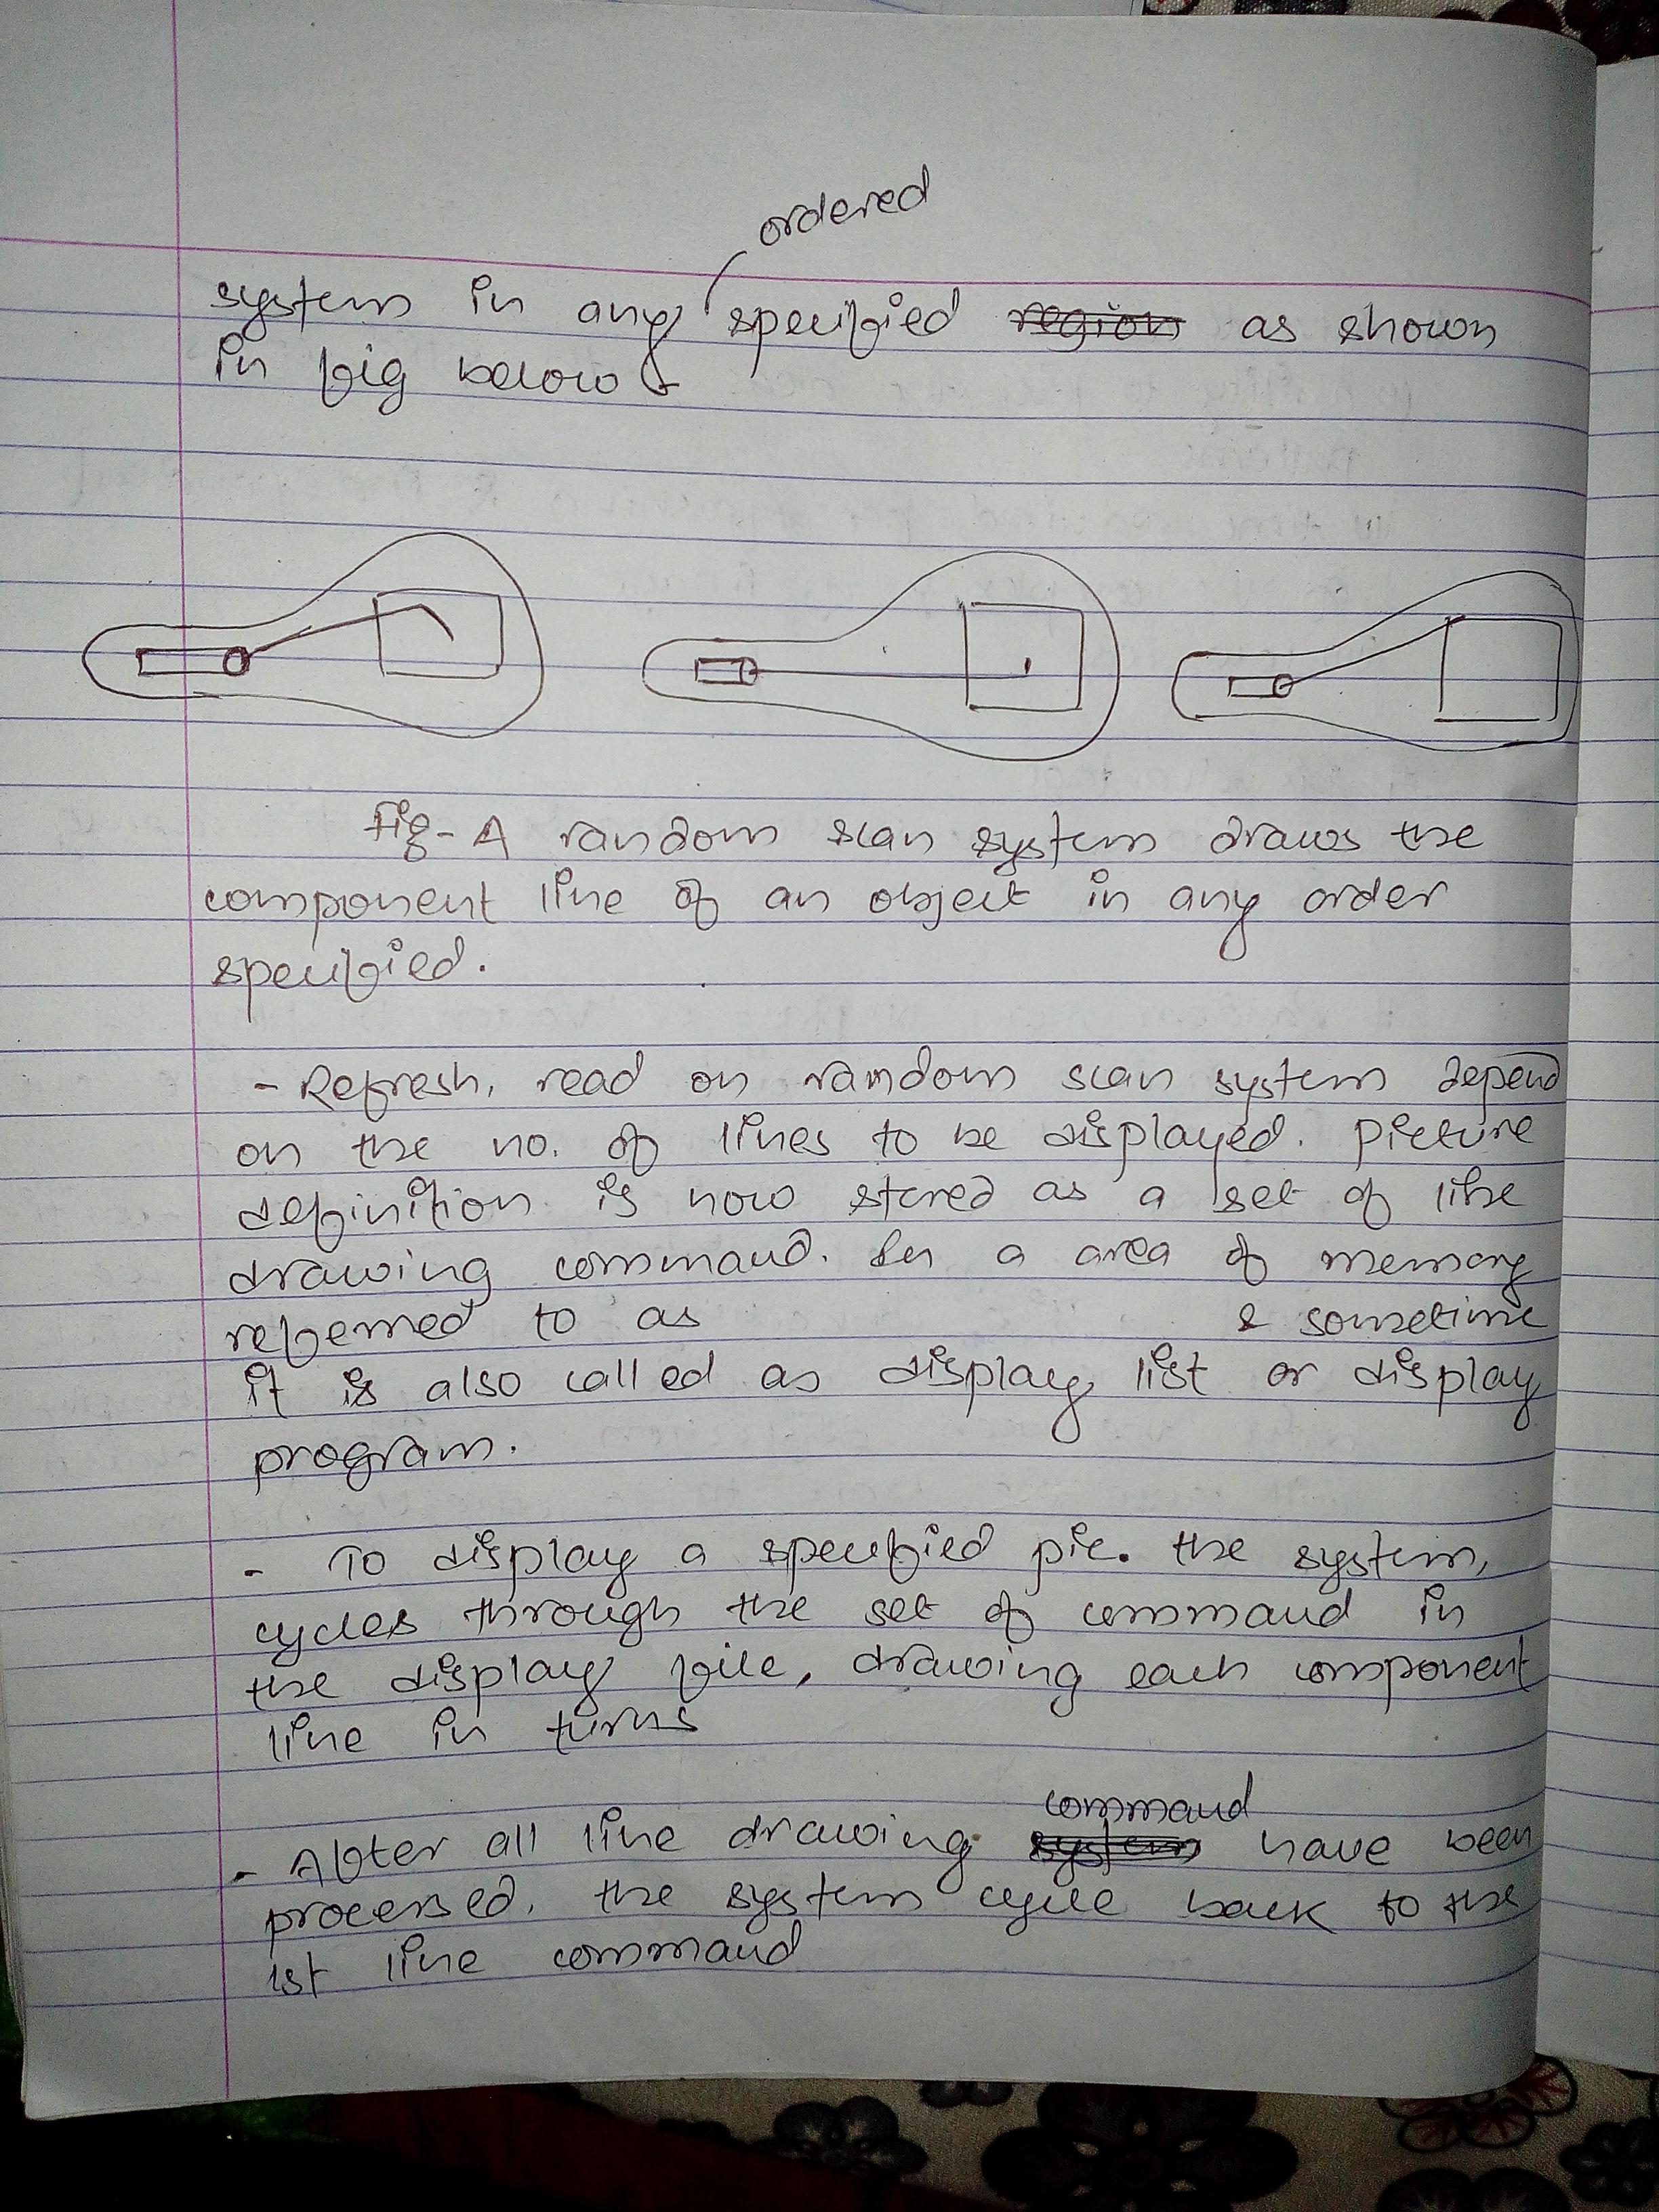 ordered
system in any specified region as shown
in fig below :-
Fig- A random scan system draws the
component line of an object in any order
specified.
- Refresh, read on random scan system depend
on the no. of lines to be displayed. picture
definition is now stored as a set of line
drawing command. In a area of memory
referred to as & sometime
it is also called as display list or display
program.
- To display a specified pic. the system,
cycles through the set of command in
the display file, drawing each component
line in turns
command
- After all line drawing system have been
processed, the system cycle back to the
1st line command